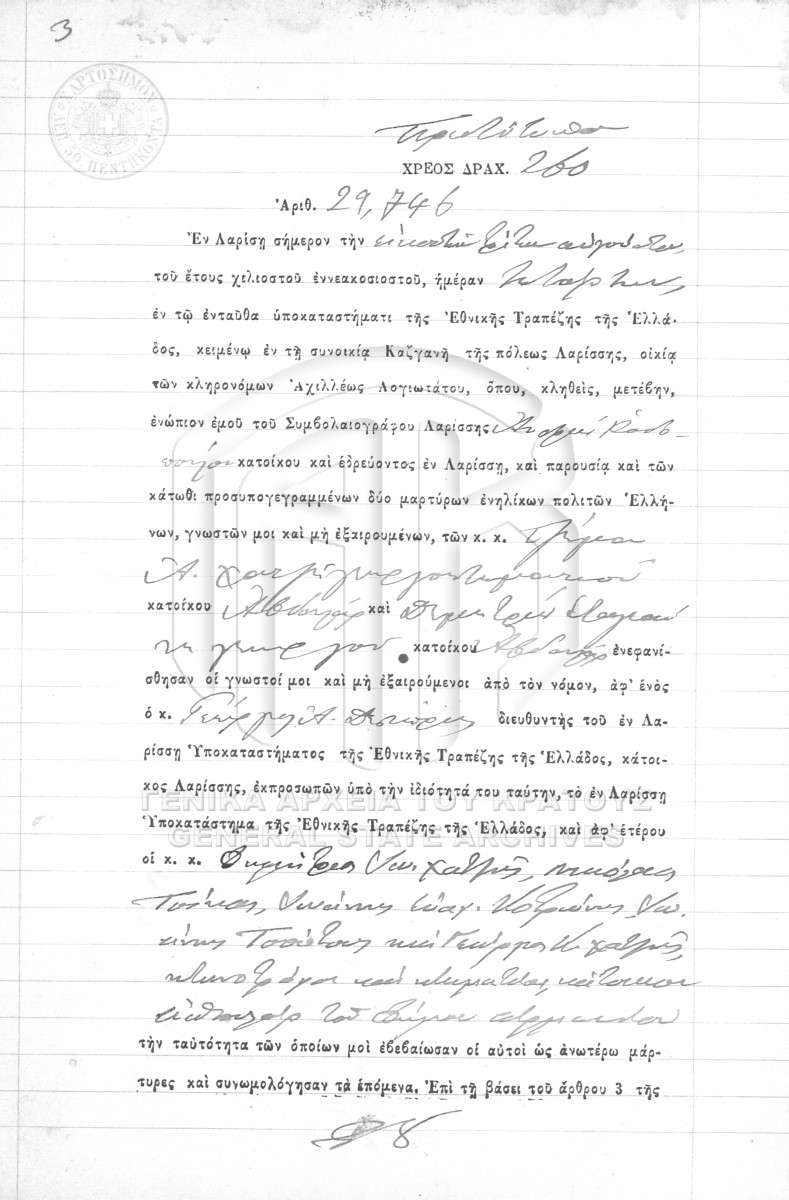 3
ΧΑΡΤΟΣΗΜΟΥ
ΛΕΠ. 50. ΠΕΝΤΗΚΟΝΤΑ
Πρωτότυπον
ΧΡΕΟΣ ΔΡΑΧ. 260
Ἀριθ. 29,746
Ἐν Λαρίσῃ σήμερον τὴν εἰκοστὴν τρίτην αὐγούστου,
τοῦ ἔτους χιλιοστοῦ ἐννεακοσιοστοῦ, ἡμέραν Τετάρτην,
ἐν τῷ ἐνταῦθα ὑποκαταστήματι τῆς Ἐθνικῆς Τραπέζης τῆς Ἑλλά-
δος, κειμένῳ ἐν τῇ συνοικίᾳ Καζγανῆ τῆς πόλεως Λαρίσσης, οἰκίᾳ
τῶν κληρονόμων Ἀχιλλέως Λογιωτάτου, ὅπου, κληθεὶς, μετέβην,
ἐνώπιον ἐμοῦ τοῦ Συμβολαιογράφου Λαρίσσης
κατοίκου καὶ ἑδρεύοντος ἐν Λαρίσσῃ, καὶ παρουσίᾳ καὶ τῶν
κάτωθι προσυπογεγραμμένων δύο μαρτύρων ἐνηλίκων πολιτῶν Ἑλλή-
νων, γνωστῶν μοι καὶ μὴ ἐξαιρουμένων, τῶν κ. κ.
Α.
κατοίκου καὶ Δημητρίου
κατοίκου ἐνεφανί-
σθησαν οἱ γνωστοί μοι καὶ μὴ ἐξαιρούμενοι ἀπὸ τὸν νόμον, ἀφ' ἑνὸς
ὁ κ. Γεώργιος Α. διευθυντὴς τοῦ ἐν Λα-
ρίσσῃ Ὑποκαταστήματος τῆς Ἐθνικῆς Τραπέζης τῆς Ἑλλάδος, κάτοι-
κος Λαρίσσης, ἐκπροσωπῶν ὑπὸ τὴν ἰδιότητά του ταύτην, τὸ ἐν Λαρίσσῃ
ΓΕΝΙΚΑ ΑΡΧΕΙΑ ΤΟΥ ΚΡΑΤΟΥΣ
Ὑποκατάστημα τῆς Ἐθνικῆς Τραπέζης τῆς Ἑλλάδος, καὶ ἀφ' ἑτέρου
GENERAL STATE ARCHIVES
οἱ κ. κ. Δημήτριος Ιω. Χατζῆς, Νικόλαος
Ἰωάννης Εὐαγ. Ἰω-
καὶ Γεώργιος Κ. Χατζῆς,
κτηνοτρόφοι καὶ κτηματίαι, κάτοικοι
τοῦ δήμου
τὴν ταὐτότητα τῶν ὁποίων μοὶ ἐβεβαίωσαν οἱ αὐτοὶ ὡς ἀνωτέρω μάρ-
τυρες καὶ συνωμολόγησαν τὰ ἑπόμενα. Ἐπὶ τῇ βάσει τοῦ ἄρθρου 3 τῆς